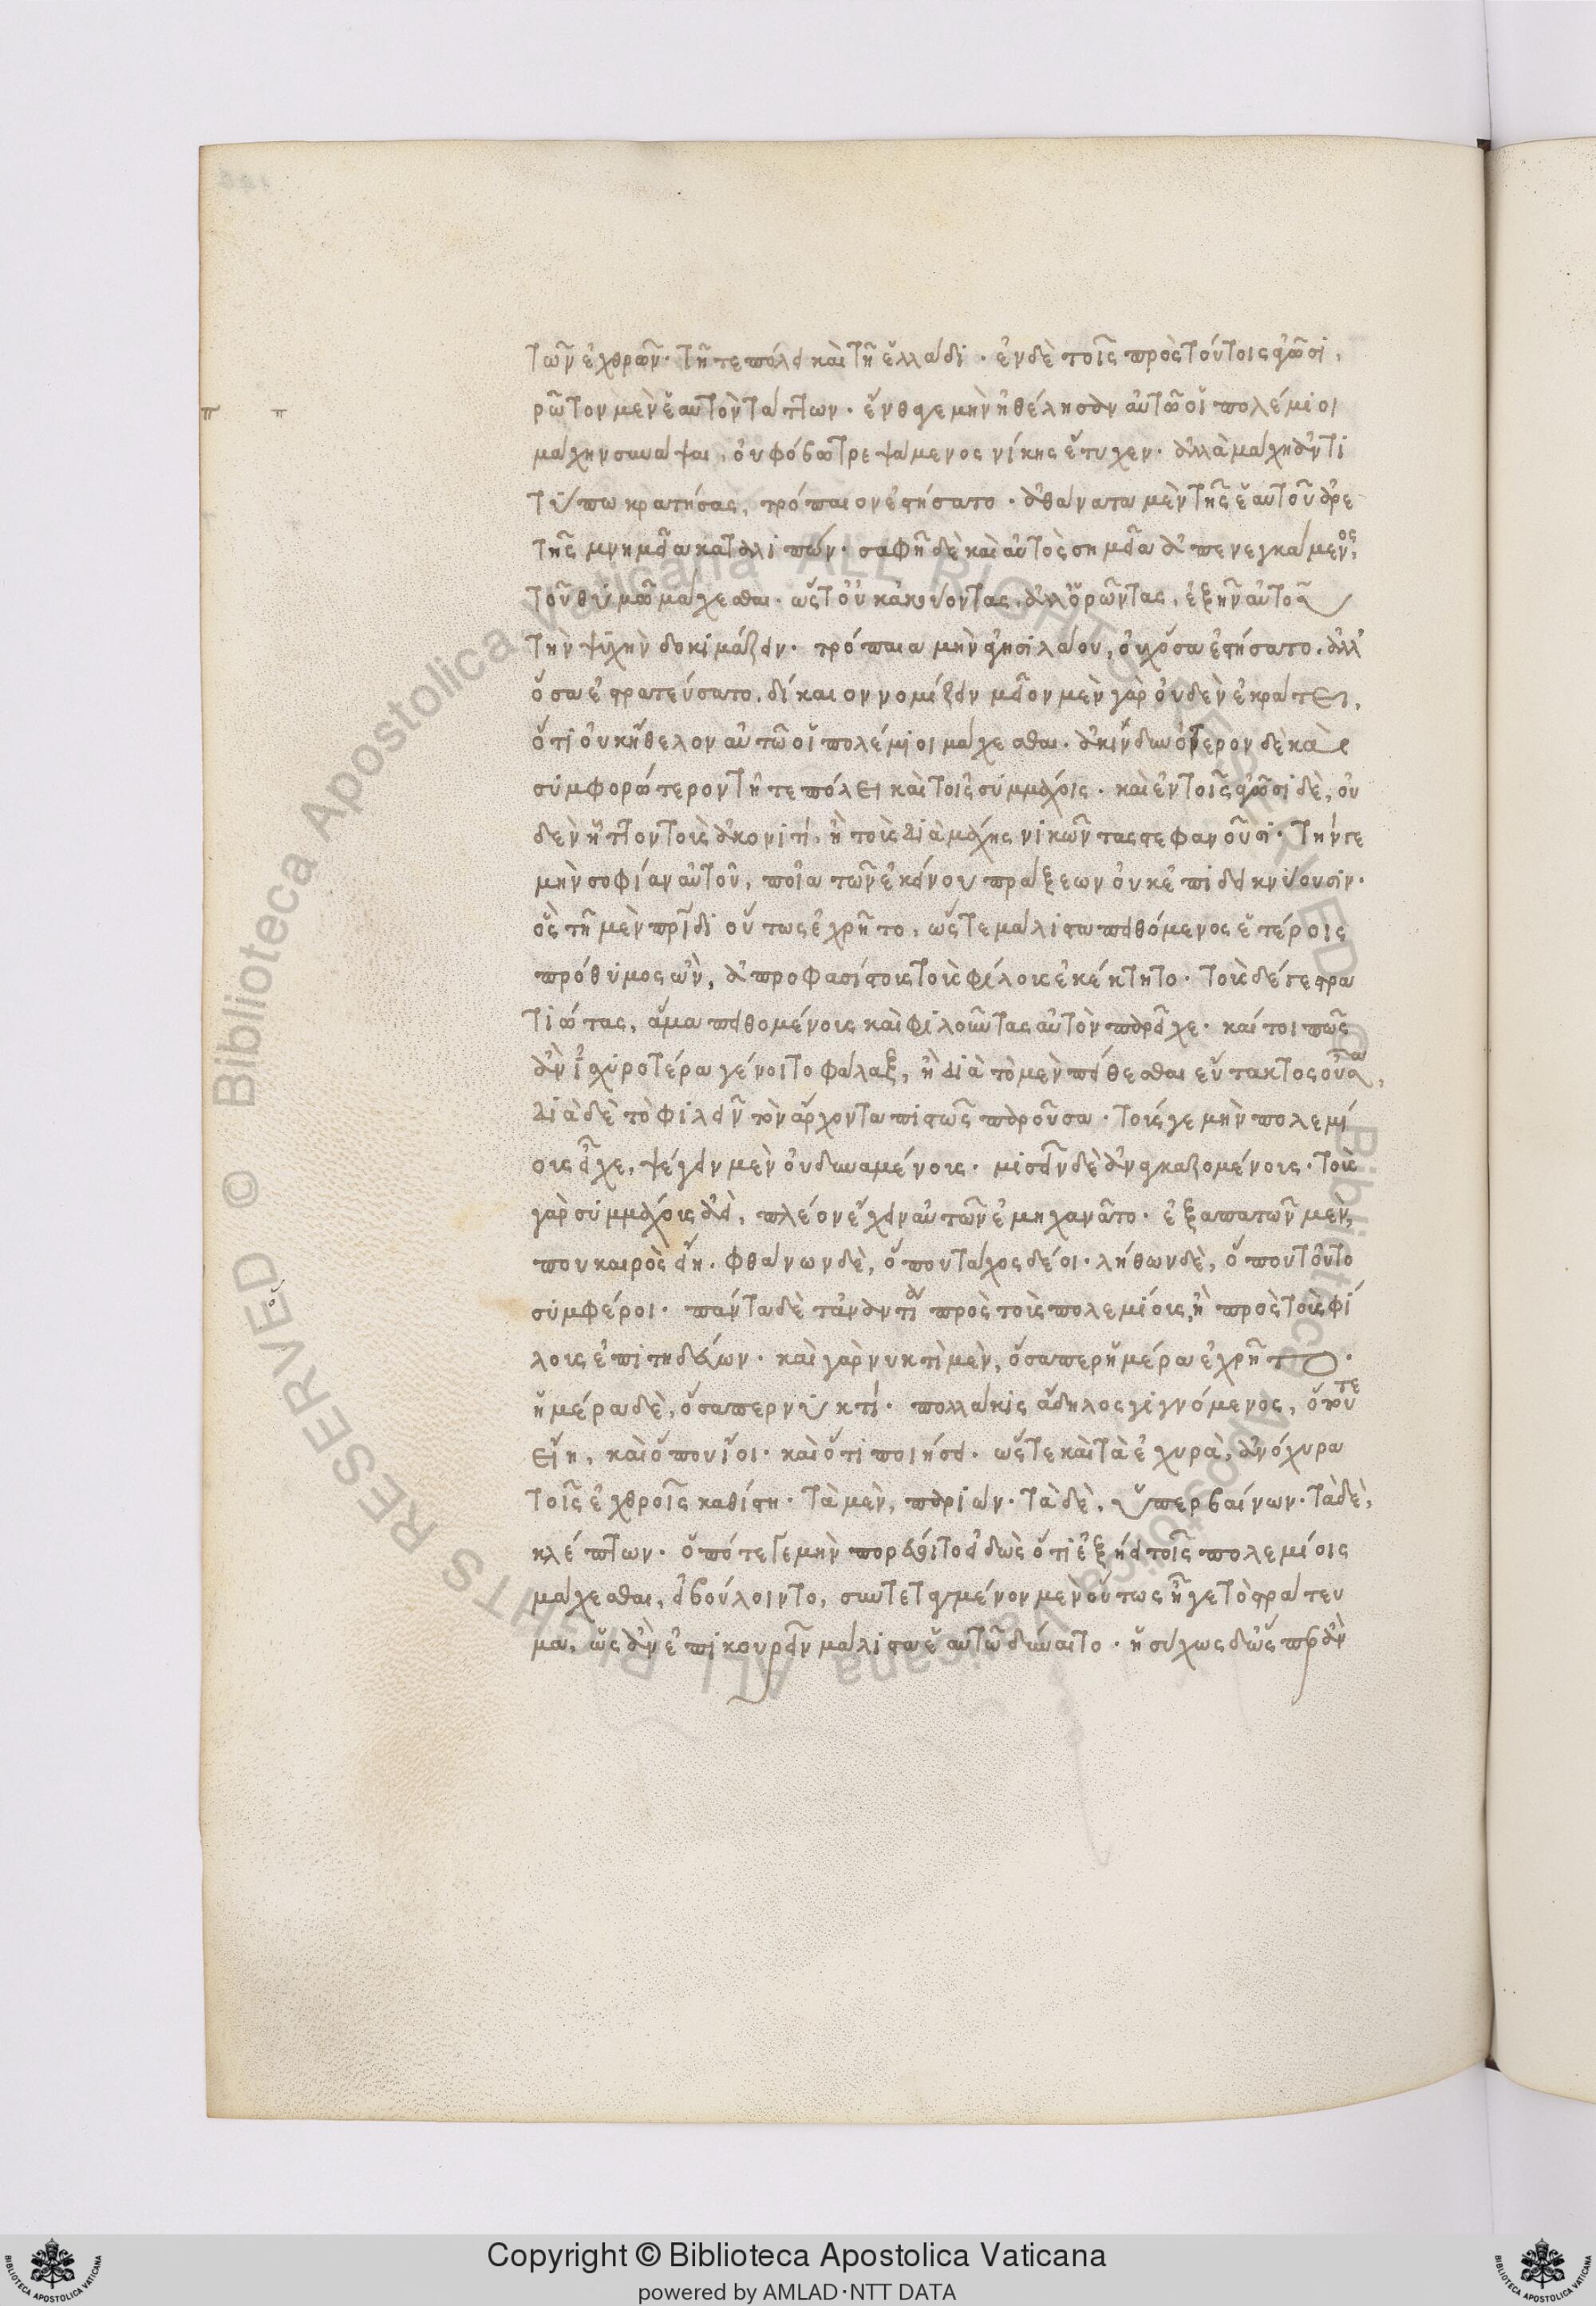 τῶν ἐχθρῶν· τῆ τε πόλει καὶ τῆ ἑλλάδι· ἐν δὲ τοῖς πρὸς τούτοις ἀγῶσι,
π π ρῶτον μὲν ἑαυτὸν τάττων· ἔνθα γε μὴν ἠθέλησαν αὐτῶ οἱ πολέμιοι
μάχην συνάψαι, οὐ φόβω τρεψάμενος νίκης ἔτυχεν· ἀλλὰ μάχη ἀντι
τύπω κρατήσας, τρόπαιον ἐστήσατο· ἀθάνατα μὲν τῆς ἑαυτοῦ ἀρε
τῆς μνημεῖα καταλιπών· σαφῆ δὲ καὶ αὐτὸς σημεῖα ἀπενεγκάμενος,
τοῦ θυμῶ μάχεσθαι· ὥστ' οὐκ ἀκούοντας, ἀλλ' ὁρῶντας, ἐξῆν αὐτοῦ
τὴν ψυχὴν δοκιμάζειν· τρόπαια μὴν ἀγησιλάου, οὐχ ὅσα ἐστήσατο. ἀλλ'
ὅσα ἐστρατεύσατο. δίκαιον νομίζειν μεῖον μὲν γὰρ οὐδὲν ἐκράτει,
ὅτι οὐκ ἤθελον αὐτῶ οἱ πολέμιοι μάχεσθαι· ἀκινδυνότερον δὲ καὶ
συμφορώτερον τῆ τε πόλει καὶ τοῖς συμμάχοις· καὶ ἐν τοῖς ἀγῶσι δὲ, οὐ
δὲν ἧττον τοὺς ἀκονιτί, ἢ τοὺς διὰ μάχης νικῶντας στεφανοῦσι· τήν γε
μὴν σοφίαν αὐτοῦ, ποῖα τῶν ἐκείνου πράξεων οὐκ ἐπιδεικνύουσιν·
ὃς τῆ μὲν πρίδι οὕτως ἐχρῆτο, ὥστε μάλιστα πειθόμενος ἑτέροις
πρόθυμος ὢν, ἀπροφασίστους τοὺς φίλους ἐκέκτητο· τοὺς δέ γε στρα
τιώτας, ἅμα πειθομένους καὶ φιλοῦντας αὐτὸν παρεῖχε· καί τοι πῶς
ἂν ἰσχυροτέρα γένοιτο φάλαξ, ἢ διὰ τὸ μὲν πείθεσθαι εὔτακτος οὖσα,
διὰ δὲ τὸ φιλεῖν τὸν ἄρχοντα πιστῶς παροῦσα· τούς γε μὴν πολεμί
ους εἶχε, ψέγειν μὲν οὐ δυναμένους· μισεῖν δὲ ἀναγκαζομένους· τοὺς
γὰρ συμμάχους ἀεὶ, πλέον ἔχειν αὐτῶν ἐμηχανᾶτο· ἐξαπατῶν μεν,
που καιρὸς εἴη· φθάνων δὲ, ὅπου τάχος δέοι· λήθων δὲ, ὅπου τοῦτο
συμφέροι· πάντα δὲ τἀναντία πρὸς τοὺς πολεμίους, ἢ πρὸς τοὺς φί
λους ἐπιτηδεύων· καὶ γὰρ νυκτὶ μὲν, ὅσαπερ ἡμέρα ἐχρῆτο·
ἡμέρα δὲ, ὅσαπερ νυκτί· πολλάκις ἄδηλος γιγνόμενος, ὅπου τε
εἴη, καὶ ὅπου ἴοι· καὶ ὅτι ποιήσει· ὥστε καὶ τὰ ἐχυρὰ, ἀνόχυρα
τοῖς ἐχθροῖς καθίστη· τὰ μὲν, παριών· τὰ δὲ, ὑπερβαίνων· τὰ δὲ,
κλέπτων· ὁπότε γε μὴν πορεύοιτο εἰδὼς ὅτι ἐξήει τοῖς πολεμίοις
μάχεσθαι, εἰ βούλοιντο, συντεταγμένον μεν οὕτως ἦγε τὸ στράτευ
μα, ὡς ἂν ἐπικουρεῖν μάλιστα ἑαυτῶ δύναιτο· ἡσύχως δ' ὥσπερ ἂν